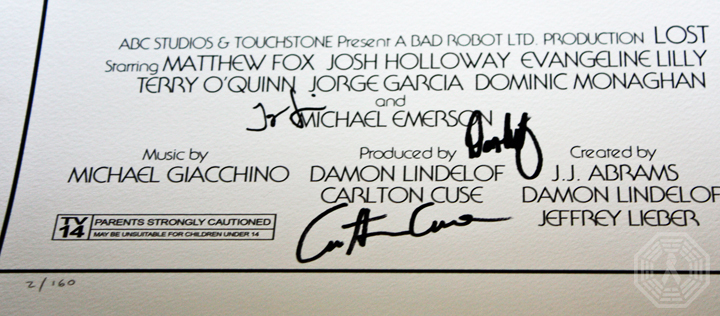 ABC STUDIOS & TOUCHSTONE Present A BAD ROBOT LTD. PRODUCTION LOST
Starring MATTHEW FOX JOSH HOLLOWAY EVANGELINE LILLY
TERRY O'QUINN JORGE GARCIA DOMINIC MONAGHAN
and
MICHAEL EMERSON
Music by
MICHAEL GIACCHINO
Produced by
DAMON LINDELOF
CARLTON CUSE
Created by
J.J. ABRAMS
DAMON LINDELOF
JEFFREY LIEBER
TV 14 PARENTS STRONGLY CAUTIONED
MAY BE UNSUITABLE FOR CHILDREN UNDER 14
2/160